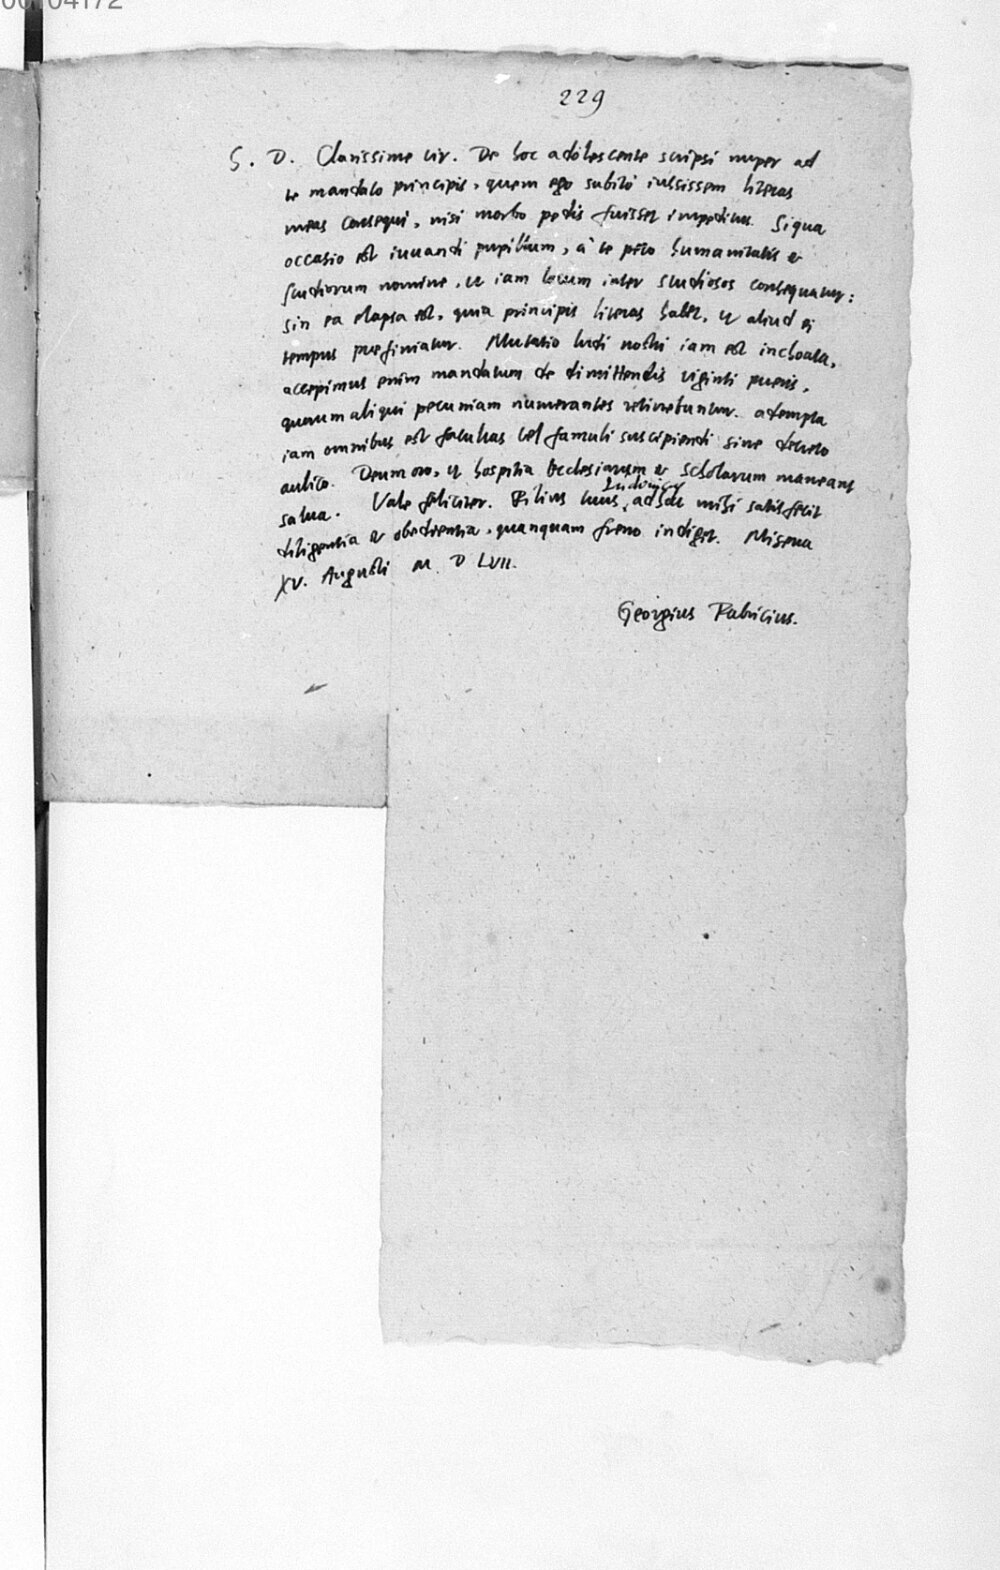 00104172
229
S. D. Clarissime vir. De hoc adolescente scripsi nuper ad
te mandato principis, quem ego subitò iussissem literas
meas consequi, nisi morbo pedis fuisset impeditus. Siqua
occasio est iuuandi pupillum, à te peto humanitatis et
studiorum nomine, ut iam locum inter studiosos consequatur:
sin ea elapsa est, quia principis literas habet, ut aliud ei
tempus praefiniatur. Mutatio ludi nostri iam est inchoata,
accepimus enim mandatum de dimittendis viginti pueris,
quorum aliqui pecuniam numerantes retinebuntur. a templa
iam omnibus est facultas vel famuli suscipiendi sine decreto
aulico. Deum oro, ut hospitia Ecclesiarum et Scholarum maneant
salua. Vale feliciter. Filius tuus Ludouicus, adhuc mihi satisfecit
diligentia et obedientia, quanquam freno indiget. Misena
XV. Augusti M D LVII.
Georgius Fabricius.